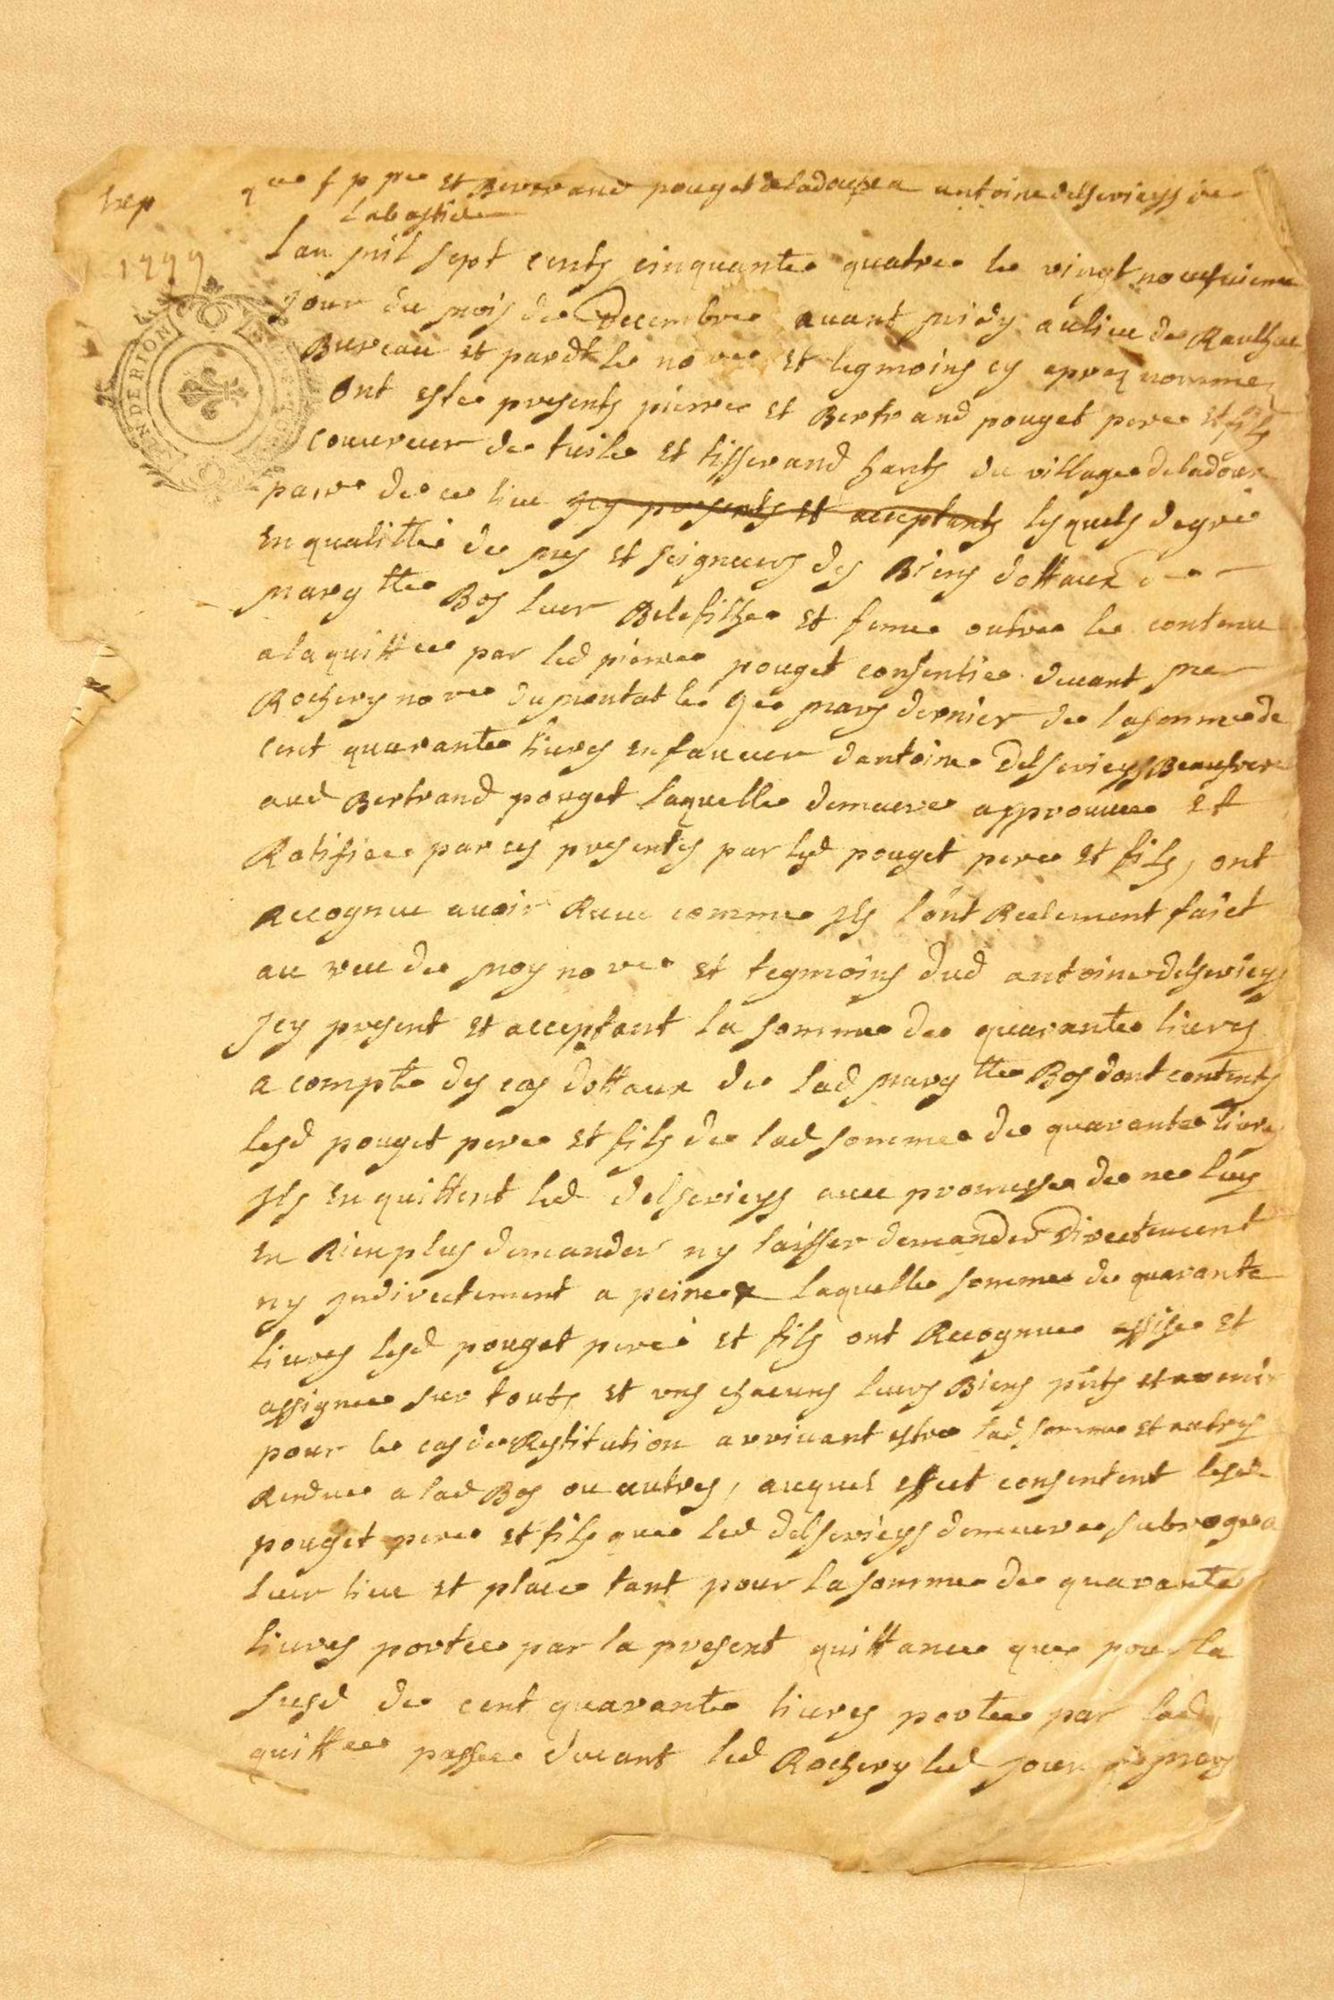 Exp
qce f p pre et Bertrand pouget deladouze a antoine delserieys de
Labastide
1779
EN DE RION
Lan mil sept cents cinquante quatre le vingt neufuieme
jour du mois de Decembre auant midy aulieu de Raulhac
Bureau et pardt le nore et tegmoins cy apres nommes
ont este presents pierre et Bertrand pouget pere et fils
couureur de tuile et tisserand hants du village deladouze
parre de ce lieu jcy presents et acceptants lesquels de gré
En qualitté de mes et seigneurs des Biens dottaux de
margtte Bos leur Bellefilhe et feme outre le contenu
a la quittce par led pierre pouget consentie deuant me
Rochery nore du montat le 9e mars dernier de la somme de
cent quarante liures en faueur dantoine Delserieys Beaufrere
aud Bertrand pouget laquelle demeure approuuee et
Ratifiee par ces presentes par lesd pouget pere et fils, ont
Recognu auoir Receu comme jls lont Reelement faict
au veu de moy nore et tegmoins dud antoine delserieys
jcy present et acceptant la somme de quarante liures
a compte des cas dottaux de lad margtte Bos dont contents
lesd pouget pere et fils de lad somme de quarante liures
jls en quittent led delserieys auec promesse de ne luy
en Rien plus demander ny laisser demander Directement
ny jndirectement a peine & laquelle somme de quarante
liures lesd pouget pere et fils ont Recognue assise et
assignee sur touts et vns chacuns leurs Biens pnts et avenir
pour le cas de Restitution arriuant estre lad somme et autres
Rendue a lad Bos ou autres, auquel effect consentent lesd
pouget pere et fils que led delserieys demeure subroge a
leur lieu et place tant pour la somme de quarante
liures portee par la present quittance que pour la
susd de cent quarante liures portee par lad
quittce passee deuant led Rochery led jour 9e mars